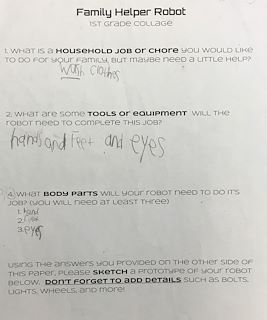 Family Helper Robot
1ST GRADE COLLAGE
1. WHAT IS A HOUSEHOLD JOB OR CHORE YOU WOULD LIKE
TO DO FOR YOUR FAMILY, BUT MAYBE NEED A LITTLE HELP?
Wash clothes
2. WHAT ARE SOME TOOLS OR EQUIPMENT WILL THE
ROBOT NEED TO COMPLETE THIS JOB?
hands and Feet and eyes
4. WHAT BODY PARTS WILL YOUR ROBOT NEED TO DO IT'S
JOB? (YOU WILL NEED AT LEAST THREE)
1. hand
2.
3. eyes
USING THE ANSWERS YOU PROVIDED ON THE OTHER SIDE OF
THIS PAPER, PLEASE SKETCH A PROTOTYPE OF YOUR ROBOT
BELOW. DON'T FORGET TO ADD DETAILS SUCH AS BOLTS,
LIGHTS, WHEELS, AND MORE!